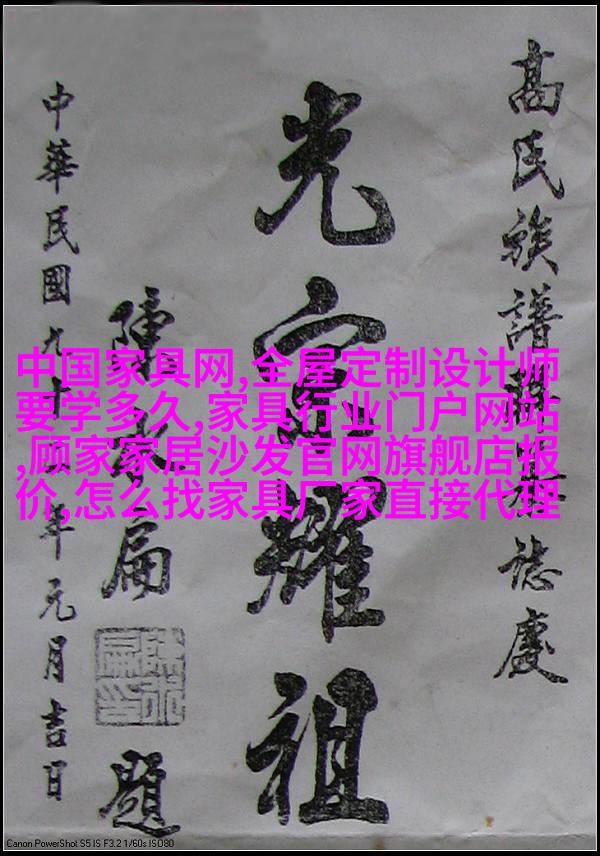 高氏族譜誌慶
光宗耀祖
陳水扁
題
中華民國九十年元月吉日
中国家具网,全屋定制设计师
要学多久,家具行业门户网站
,顾家家居沙发官网旗舰店报
价,怎么找家具厂家直接代理
Canon PowerShot S5 IS F3.2 1/60s ISO80